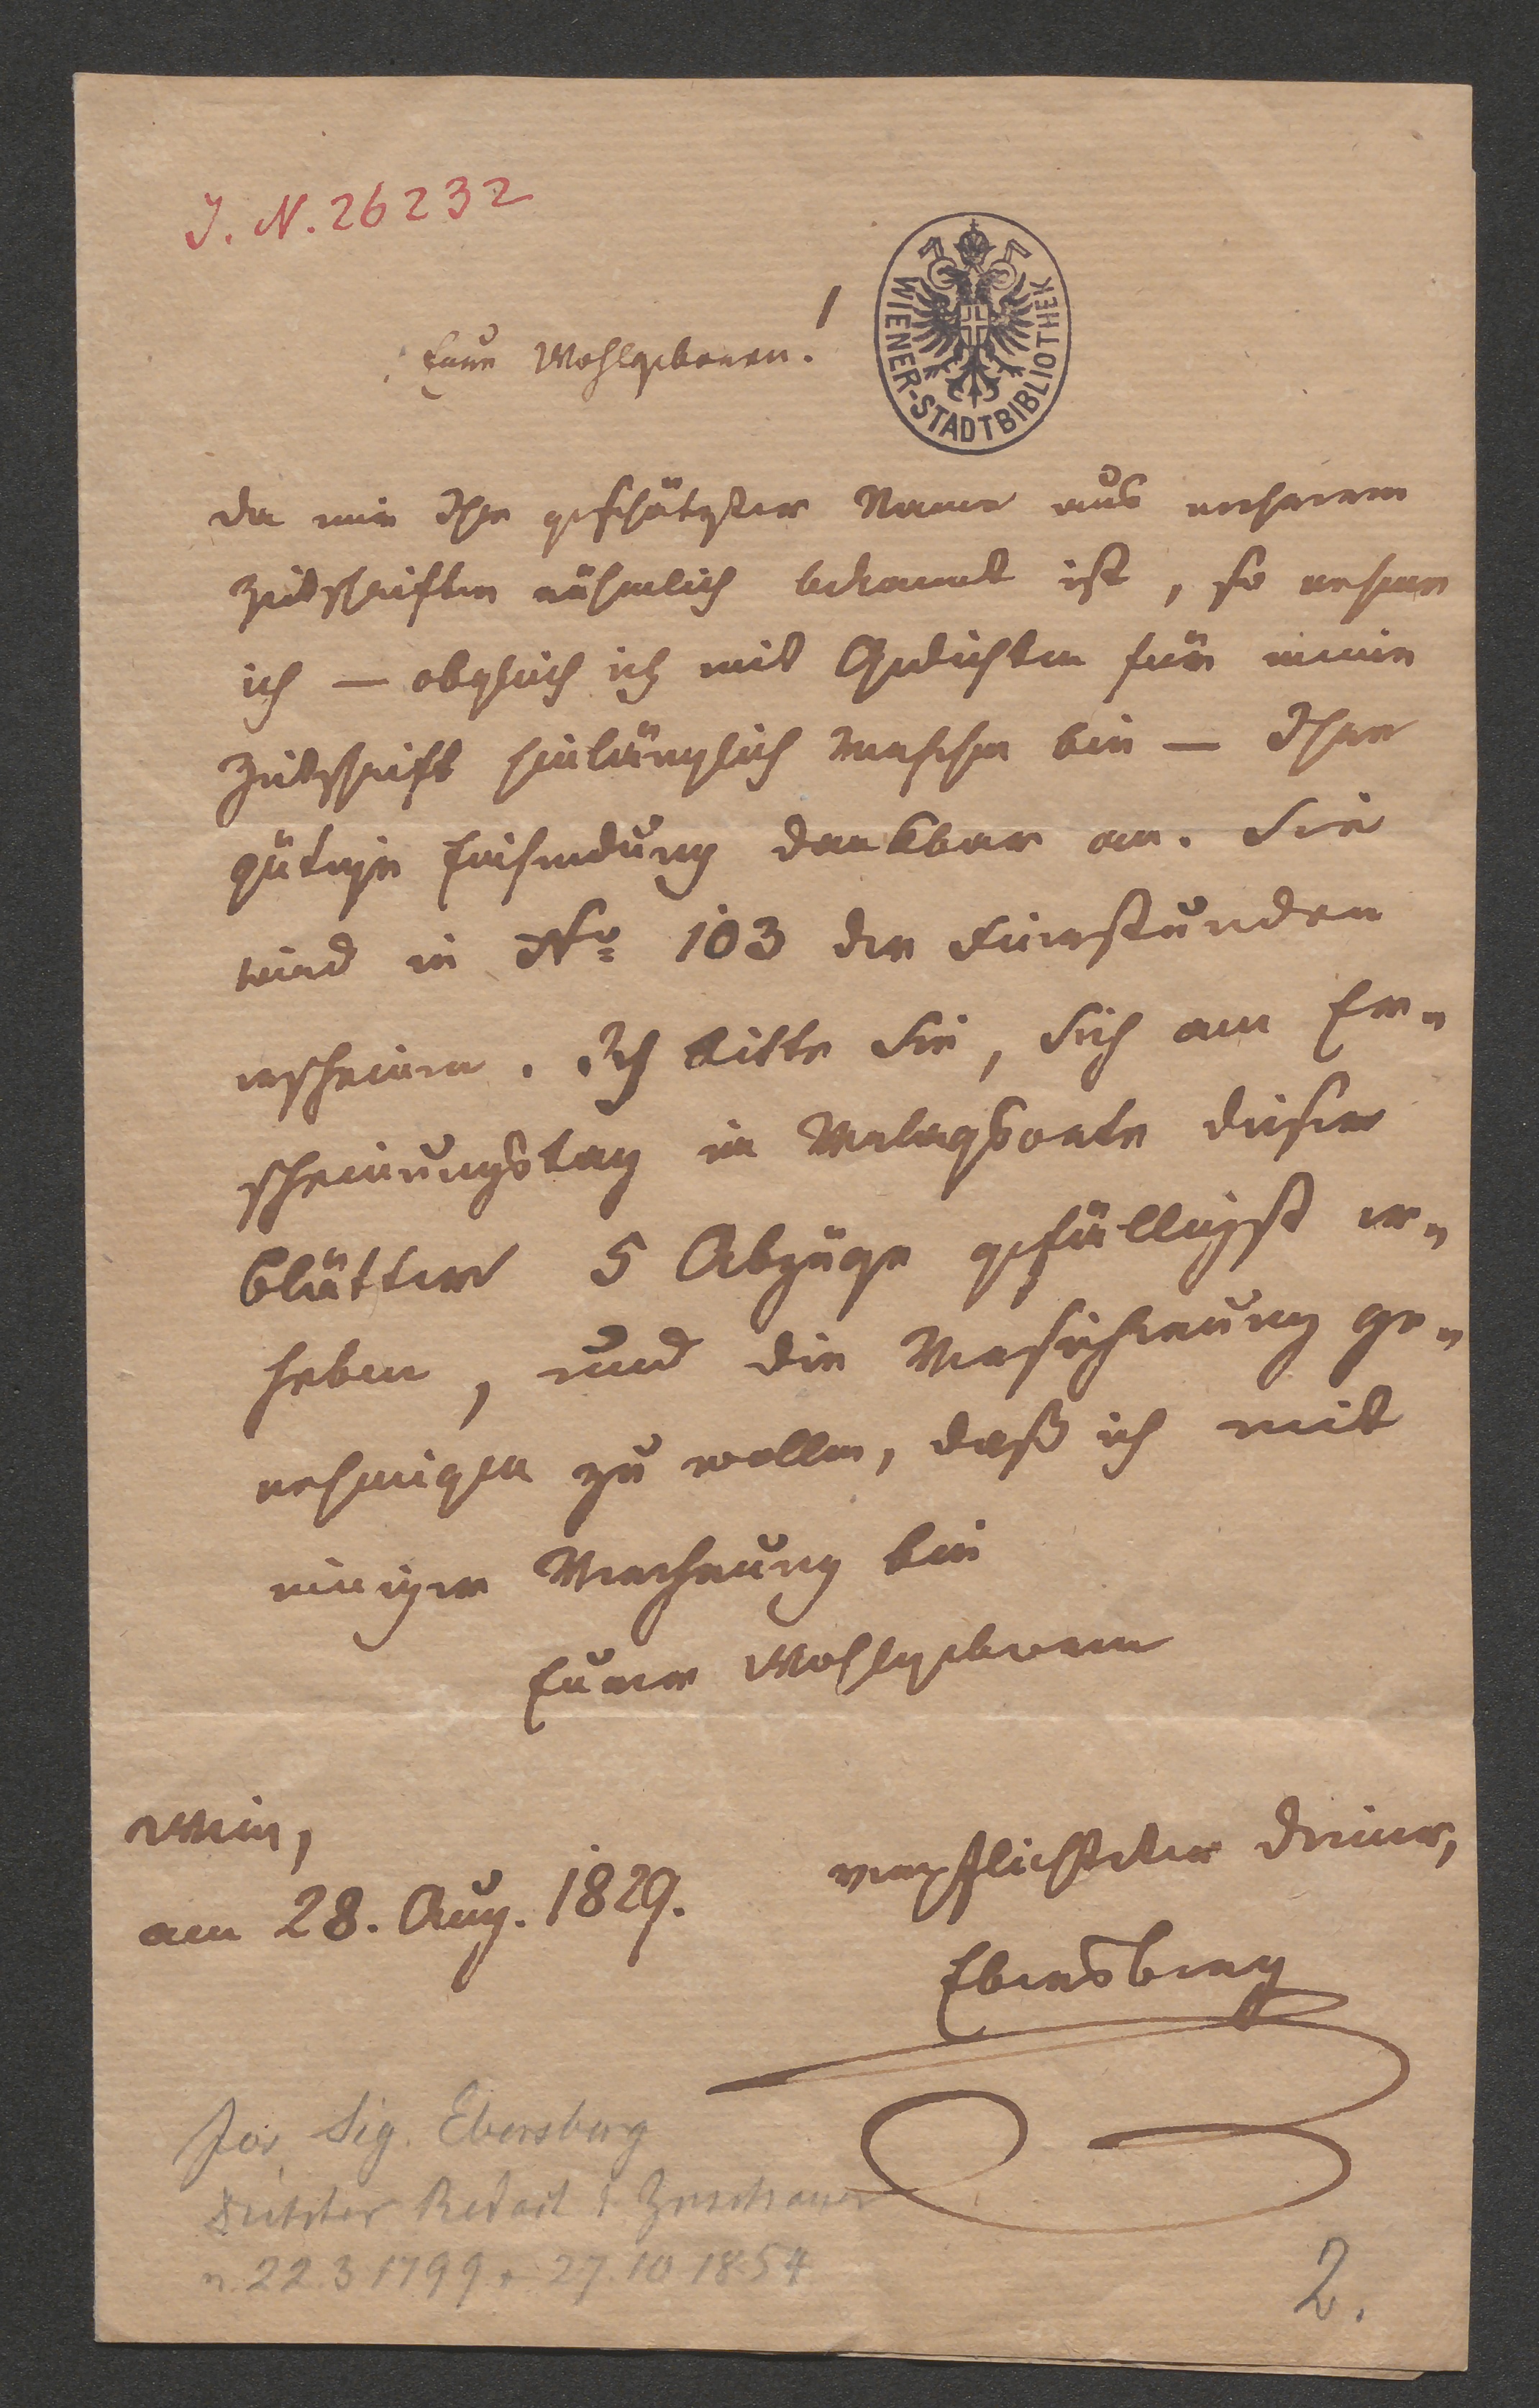 J. N. 26232
WIENER-STADTBIBLIOTHEK
Euer Wohlgeboren!
Da mir Ihr geschätzter Name aus mehreren
Zeitschriften rühmlich bekannt ist, so nehme
ich — obgleich ich mit Gedichten für meine
Zeitschrift hinlänglich versehen bin — Ihre
gütige Einsendung dankbar an. Sie
wird in No 103 der Feierstunden
erscheinen. Ich bitte Sie, sich am Er-
scheinungstag im Verlagsorte dieser
Blätter 5 Abzüge gefälligst er-
heben, und die Versicherung ge-
nehmigen zu wollen, daß ich mit
inniger Verehrung bin
Euerer Wohlgeboren
Wien,
am 28. Aug. 1829.
verpflichteter Diener,
Ebersberg
Jos. Sig. Ebersberg
Dichter Redact d. Zuschauer
n. 22. 3 1799 + 27. 10 1854
2.